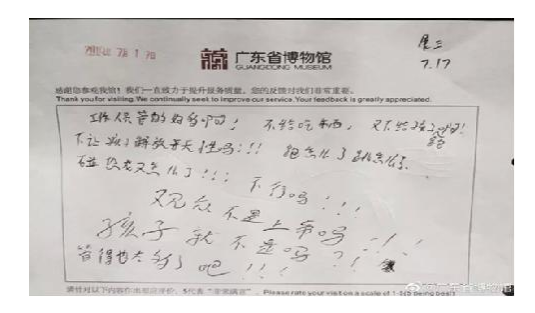 展三
7.17
广东省博物馆
GUANGDONG MUSEUM
感谢您参观我馆！我们一直致力于提升服务质量，您的反馈对我们非常重要。
Thank you for visiting. We continually seek to improve our service. Your feedback is greatly appreciated.
管的好多啊！不给吃东西，又不给孩子
不让孩子解放天性吗！！！跑怎么了跳怎么了
碰 又怎么了！！！不行吗！！！
观众不是上帝吗！！！
孩子就不是吗？！！
管得也太多了吧！！！
请针对以下内容作出相应评价，5代表“非常满意”。Please rate your visit on a scale of 1-5(5 being best)
@广东省博物馆